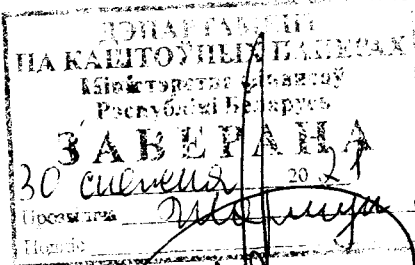 ДЭПАРТАМЕНТ
ПА КАШТОЎНЫХ ПАПЕРАХ
Міністэрства фінансаў
Рэспублікі Беларусь
ЗАВЕРАНА
30 2021
Прозвішча
Подпіс